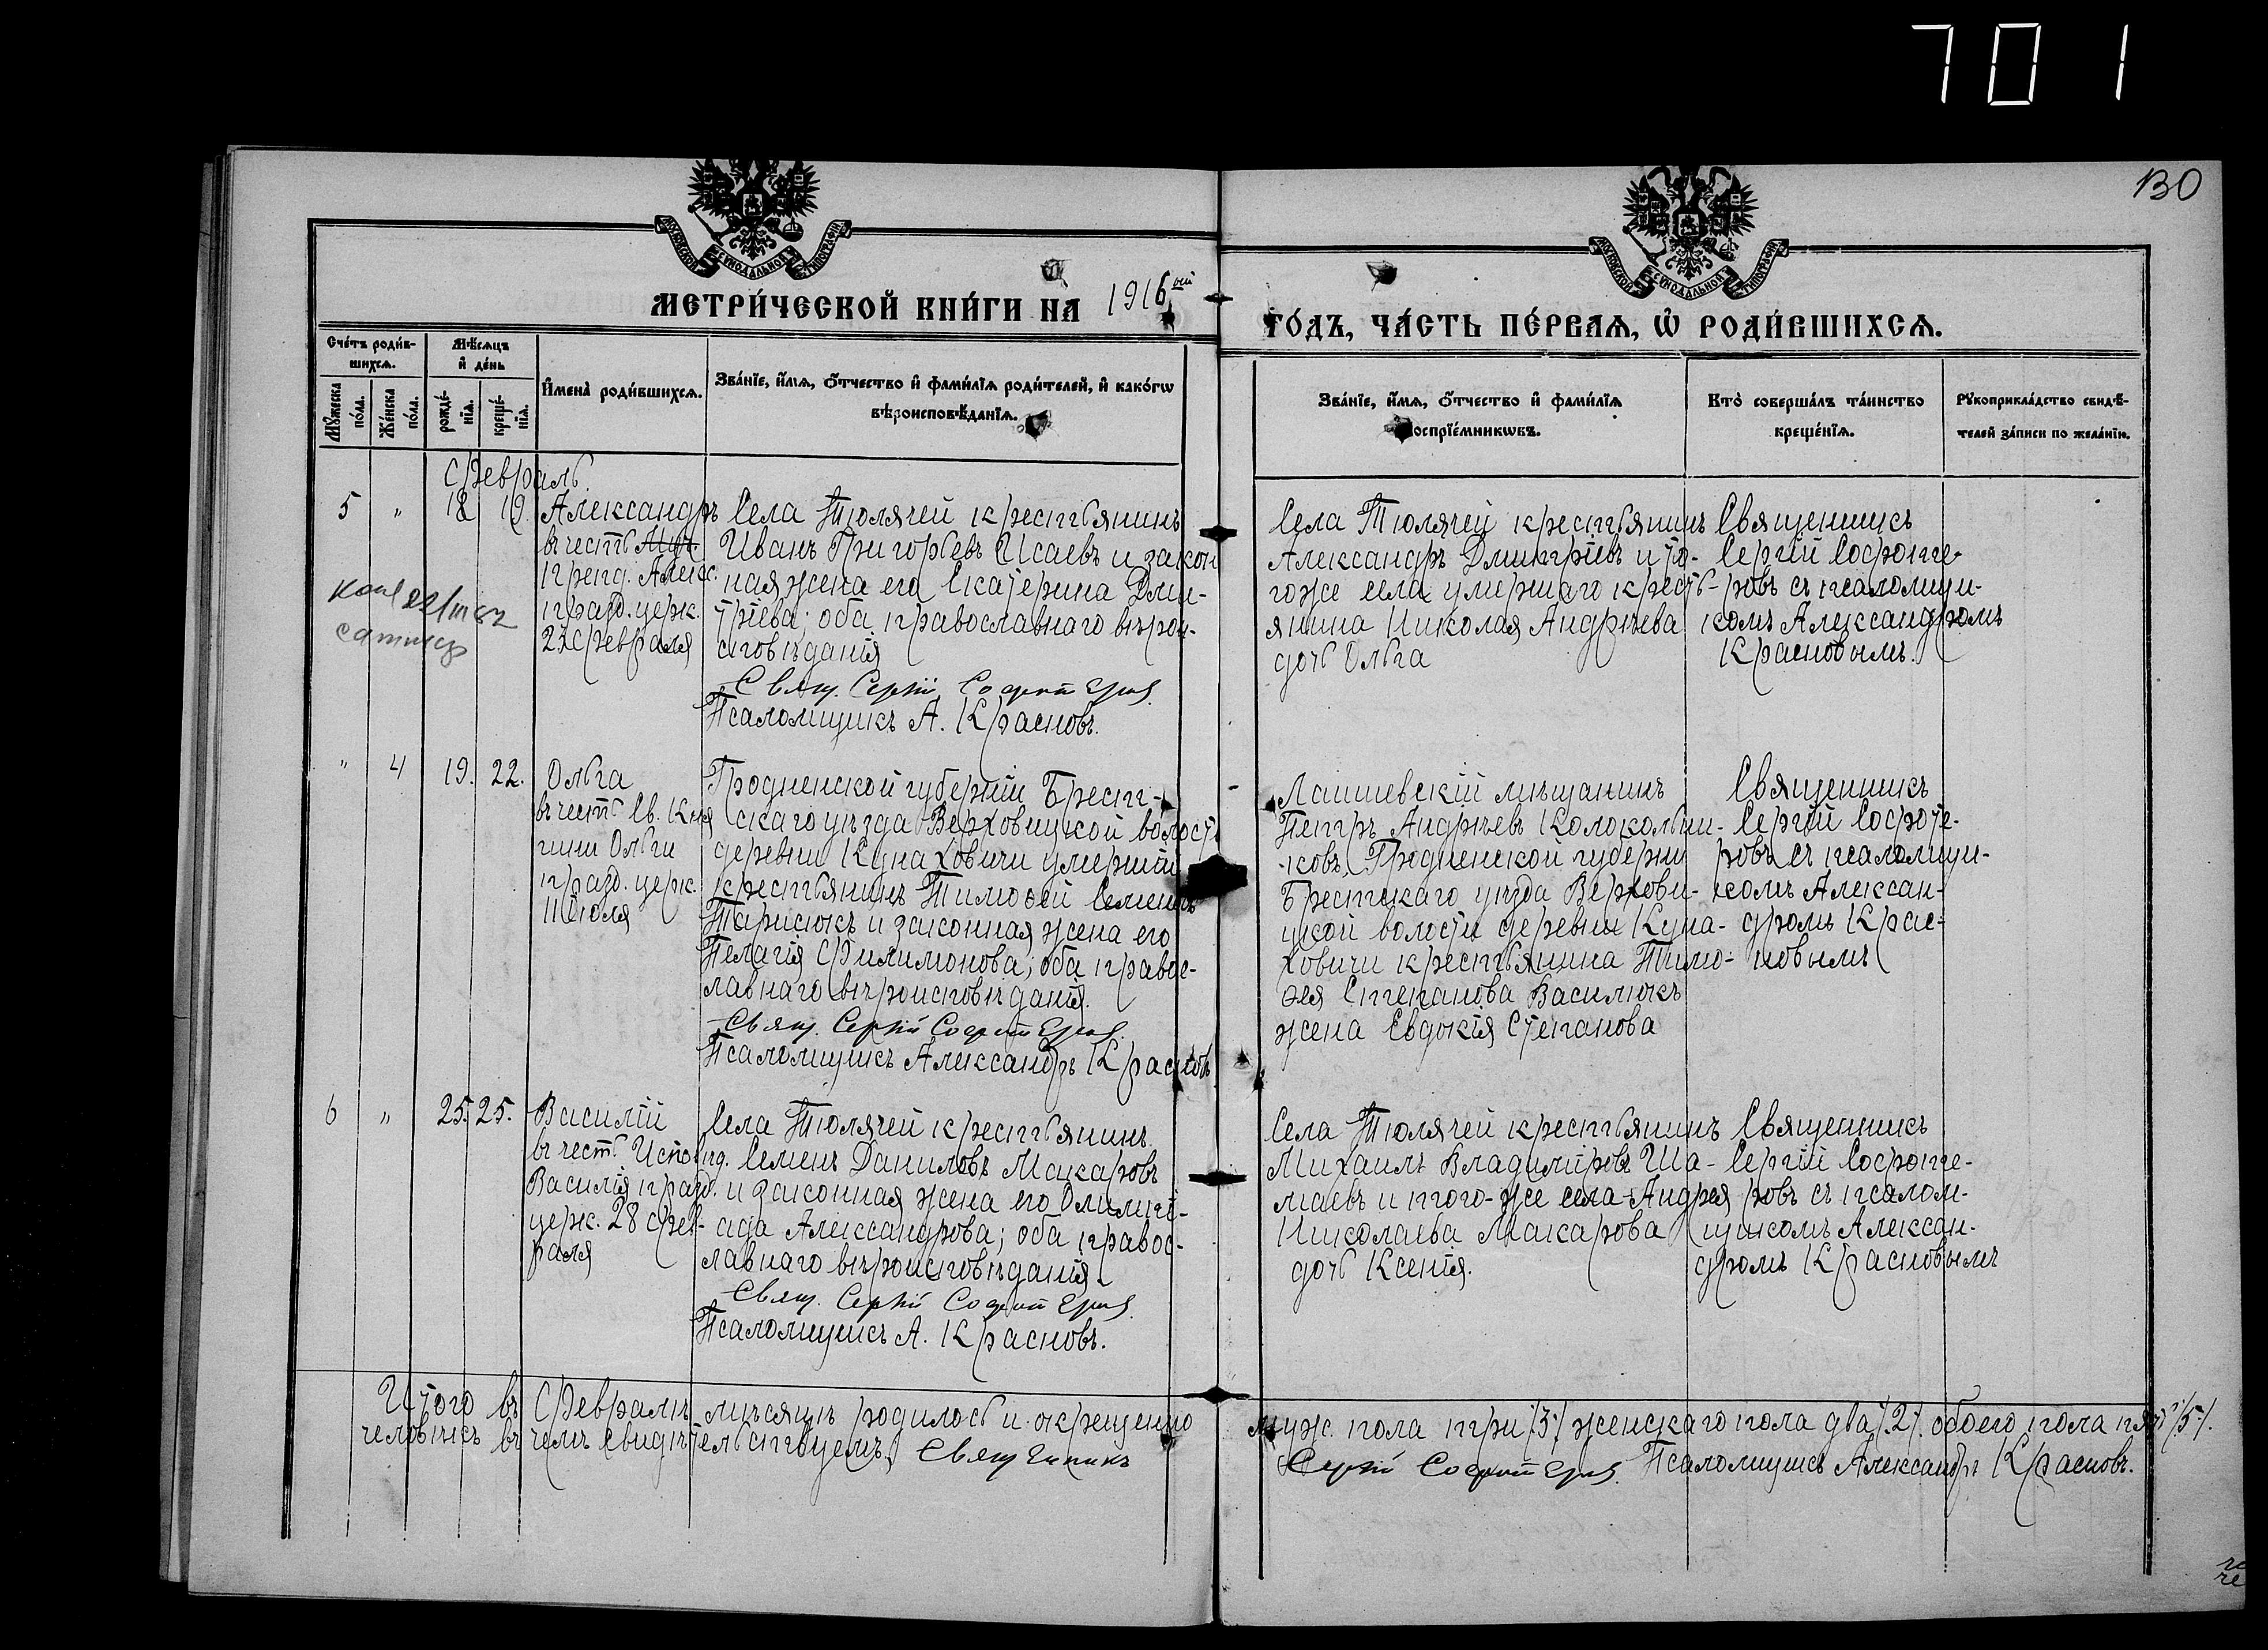 701
130
МОСКОВСКОЙ СѴНОДАЛЬНОЙ ТИПОГРАФІИ
МОСКОВСКОЙ СѴНОДАЛЬНОЙ ТИПОГРАФІИ
МЕТРИ́ЧЕСКОЙ КНИ́ГИ НА 1916 ый
ГО́ДЪ, ЧА́СТЬ ПЕ́РВАЯ, Ѡ҆ РОДИ́ВШИХСЯ.
Сче́тъ роди́в-
шихся.
Мꙋ́жеска
по́ла.
Же́нска
по́ла.
Мѣ́сяцъ
и҆ де́нь
рожде́-
нїя.
креще́-
нїя.
И҆мена̀ роди́вшихся.
Зва́нїе, и҆́мя, ѻ҆́тчество и҆ фами́лїя роди́телей, и҆ како́гѡ
вѣроисповѣ́данїя.
Зва́нїе, и҆́мя, ѻ҆́тчество и҆ фами́лїя
воспрїе́мникѡвъ.
Кто̀ соверша́лъ та́инство
креще́нїя.
Рꙋкоприкла́дство свидѣ́-
телей за́писи по жела́нїю.
Февраль.
5 " 18 19
Александръ
въ честь Муч.
препд. Алекс.
празд. церк.
23 февраля
Села Тюлячей крестьянинъ
Иванъ Григорьевъ Исаевъ и закон
ная жена его Екатерина Дми-
тріева; оба православнаго вѣрои-
сповѣданія
Свящ. Сергій Софотеровъ.
Псаломщикъ А. Красновъ.
Села Тюлячей крестьянинъ
Александръ Дмитріевъ и то-
гоже села умершаго кресть-
янина Николая Андрѣева
дочь Ольга
Священникъ
Сергій Софоте-
ровъ съ псаломщи-
комъ Александромъ
Красновымъ.
" 4 19. 22.
Ольга
въ честь Св. Кня
гини Ольги
празд. церк.
11 іюля
Гродненской губерніи Брест-
скаго уѣзда Верховицкой волости
деревни Кунаховичи умершій
крестьянинъ Тимоѳей Семеновъ
Тарисюкъ и законная жена его
Пелагія Филимонова; оба правос-
лавнаго вѣроисповѣданія.
Свящ. Сергій Софотеровъ.
Псаломщикъ Александръ Красновъ
Лаишевскій мѣщанинъ
Петръ Андрѣевъ Колокольни-
ковъ, Гродненской губерни
Брестскаго уѣзда Верхови-
цкой волости деревни Куна-
ховичи крестьянина Тимо-
ѳея Степанова Василюкъ
жена Евдокія Степанова
Священникъ
Сергій Софоте-
ровъ съ псаломщи-
комъ Алексан-
дромъ Крас-
новымъ
6 " 25. 25.
Василій
въ честь Исповѣд.
Василія празд.
церк. 28 фев-
раля
Села Тюлячей крестьянинъ
Семенъ Даниловъ Макаровъ
и законная жена его Олимпі-
ада Александрова; оба правос-
лавнаго вѣроисповѣданія.
Свящ. Сергій Софотеровъ.
Псаломщикъ А. Красновъ.
Села Тюлячей крестьянинъ
Михаилъ Владиміровъ Ша-
маевъ и того-же села Андрея
Николаева Макарова
дочь Ксенія.
Священникъ
Сергій Софоте-
ровъ съ псалом-
щикомъ Алексан-
дромъ Красновымъ
Итого въ Февралѣ мѣсяцѣ родилось и окрещенно
муж. пола три /3/ женскаго пола два /2/. обоего пола пять /5/.
человѣкъ въ чемъ свидѣтельствуемъ. Священникъ
Сергій Софотеровъ. Псаломщикъ Александръ Красновъ.